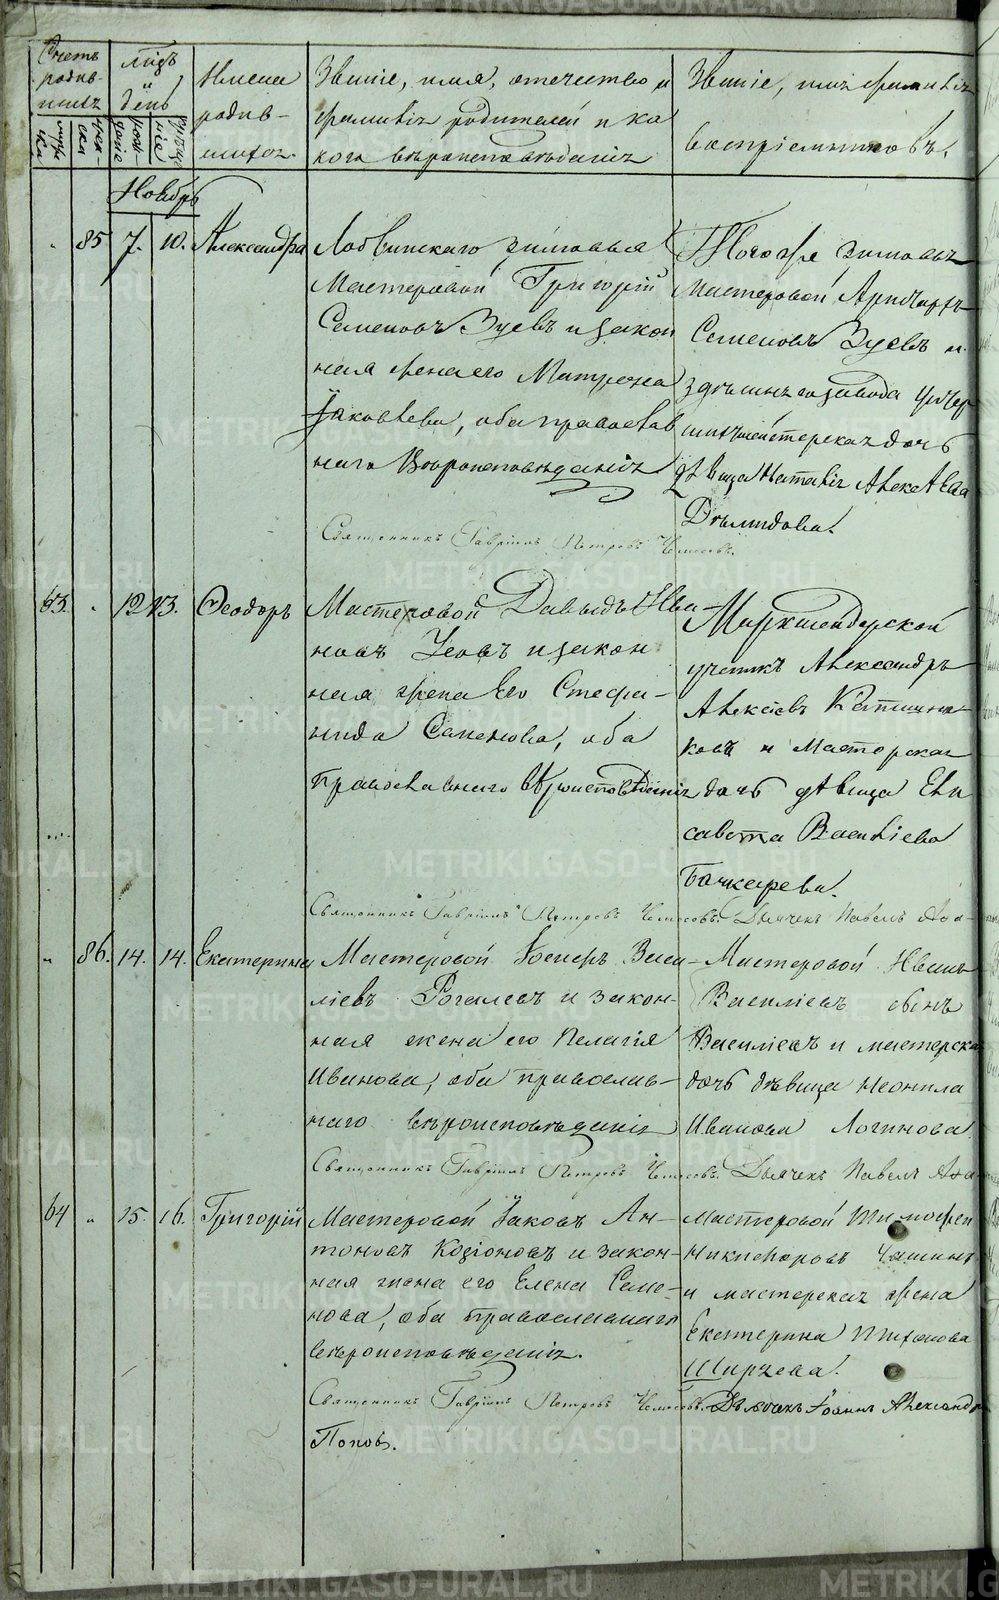 Счетъ родив-шихся
мужска
женска
Мѣсяцъ и день
рожденіе
крещеніе
Имена родив-шихся.
Званіе, имя, отчество и
фамилія родителей и ка
кого вѣроисповѣданія
Званіе, имя фамилія
воспріемниковъ.
Ноябрь
85 7. 10. Александра
Лобвинскаго зимовья
Мастеровой Григорій
Семеновъ Зуевъ и закон
ная жена его Матрона
Яковлева, оба православ
наго Вѣроисповѣданія
Тогоже зимовья
Мастеровой
Семеновъ Зуевъ и
здѣшняго завода
дочь
дѣвица Наталія Алексѣева
Демидова.
Священникъ Гавріилъ Петровъ
63. " 12 13. Ѳеодоръ
Мастеровой Давыдъ Ива-
новъ Усовъ и закон
ная жена Его Стефа-
нида Семенова, оба
Православнаго вѣроисповѣданія
Маркшейдерской
ученикъ Александръ
Алексѣевъ
ковъ и Мастерская
дочь дѣвица Ели
савета Васильева
Бочкарева.
Священникъ Гавріилъ Петровъ Дьячекъ Павелъ
" 86. 14. 14. Екатерина
Мастеровой Василіевъ Рогалевъ и закон-
ная жена его Пелагія
Иванова, оба православ-
наго вѣроисповѣданія
Мастеровой Иванъ
Василіевъ
Василіевъ и мастерска
дочь дѣвица Неонила
Иванова Логинова
Священникъ Гавріилъ Петровъ Дьячекъ Павелъ
64 " 15. 16. Григорій
Мастеровой Яковъ Ан-
тоновъ Козіоновъ и закон-
ная жена его Елена Семе-
нова, оба православнаго
вѣроисповѣданія.
Мастеровой Тимофей
Никифоровъ Чашинъ
и мастерская жена
Екатерина Тихонова
Ширяева.
Священникъ Гавріилъ Петровъ Дьячекъ Іоаннъ Александр
Поповъ.
METRIKI.GASO-URAL.RU